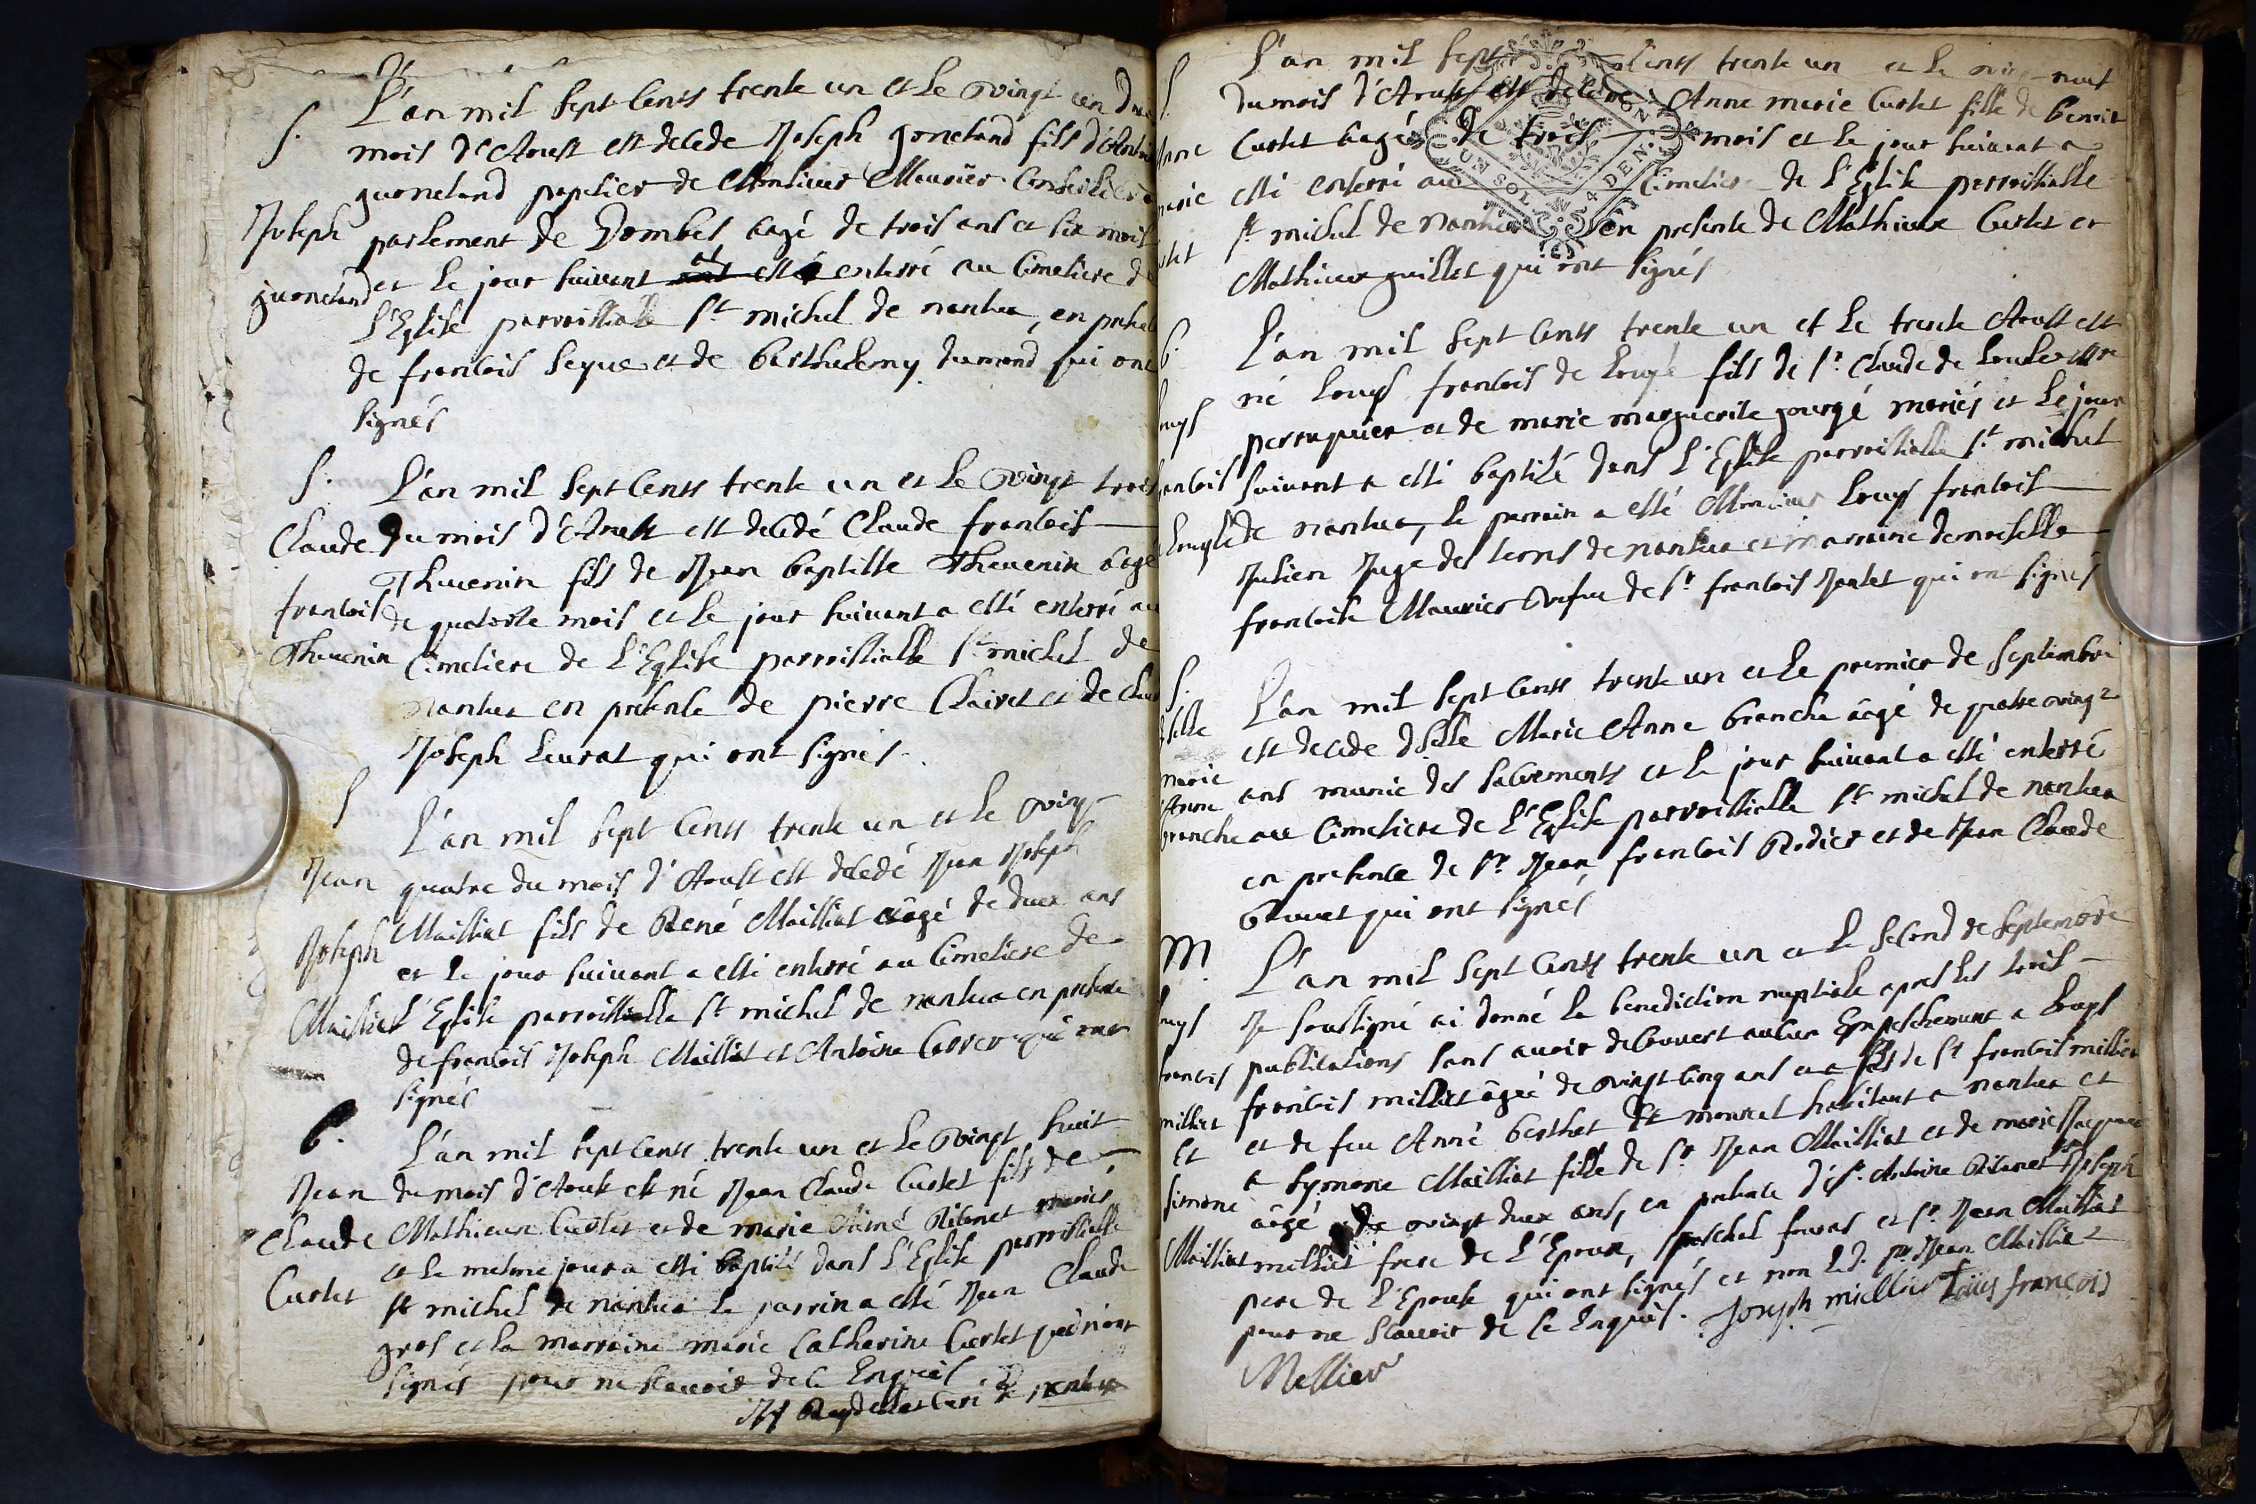 S. L'an mil sept cents trente un et le vingt un du
mois d'Aoust est decede Joseph goneland fils d'
Joseph guoneland
guoneland papetier de Monsieur Maurier Conseiller
parlement de Dombes aagé de trois ans et six mois
et le jour suivant a esté enterré au Cimetiere de
L'Eglise parroissialle St michel de nantua, en presence
de francois seque et de berthelemy dumond qui ont
signés
S. L'an mil sept cents trente un et le vingt trois
Claude francois Thevenin
du mois d'Aoust est decedé Claude francois
Thevenin fils de Jean baptiste Thevenin aagé
de quatorze mois et le jour suivant a esté enterré au
Cimetiere de L'Eglise parroissialle St michel de
nantua en presence de pierre Clairet et de
Joseph Leurat qui ont signés.
S L'an mil sept cents trente un et le vingt
Jean Joseph Mailliat
quatre du mois d'Aoust est decedé Jean Joseph
Mailliat fils de René Mailliat aagé de deux ans
et le jour suivant a esté enterré au Cimetiere de
L'Eglise parroissialle St michel de nantua en presence
de francois Joseph Mailliat et Antoine qui ont
signés
b. L'an mil sept cents trente un et le vingt huit
Jean Claude Curtet
du mois d'Aoust est né Jean Claude Curtet fils de
Mathieux Curtet et de marie Aimé mariés
et le mesme jour a esté baptisé dans L'Eglise parroissialle
St michel de nantua le parrin a esté Jean Claude
gros et la marraine marie Catherine Curtet qui n'ont
signés pour ne scavoir de ce Enquis
curé de nantua
S. L'an mil sept cents trente un et le vingt neuf
Anne marie
du mois d'Aoust est decedée Anne marie Curtet fille de benoit
Curtet aagée de trois mois et le jour suivant a
esté enterré au Cimetiere de L'Eglise parroissialle
St michel de nantua en presence de Mathieux Curtet et
Mathieux guillet qui ont signés
b. L'an mil sept cents trente un et le trente Aoust est
né Louys francois de fils de Sr. Claude de
perruquier et de marie marguerite gourgé mariés et le jour
suivant a esté baptisé dans L'Eglise parroissialle St michel
de nantua, le parrain a esté Monsieur Louys francois
Julien Juge des terres de nantua et marraine demoiselle
francoise Maurier vefve de Sr. francois Jantet qui ont signés
S. L'an mil sept cents trente un et le premier de septembre
marie Anne branche
est decede dlle Marie Anne branche aagé de quatre vingt
ans munie des sacrements et le jour suivant a esté enterré
au Cimetiere de L'Eglise parroissialle St michel de nantua
en presence de Sr. Jean francois Rodier et de Jean Claude
qui ont signés
M. L'an mil sept cents trente un et le second de septembre
francois milliet et simone Mailliat
Je soussigné ai donné la benediction nuptiale apres les trois
publications sans avoir decouvert aucun Empeschement a Louys
francois milliet aagé de vingt cinq ans fils de Sr francois milliet
et de feu Anne berthet habitant a nantua et
a symone Mailliat fille de Sr Jean Mailliat et de marie
aagé de vingt deux ans, en presence de Sr. Antoine Joseph
milliet frere de L'Epoux, et Sr. Jean Mailliat
pere de L'Epouse qui ont signés et non led. Sr Jean Mailliat
pour ne scavoir de ce Enquis. Joseph miellier Loüis françois
Mellier
UN SOL 4 DEN.